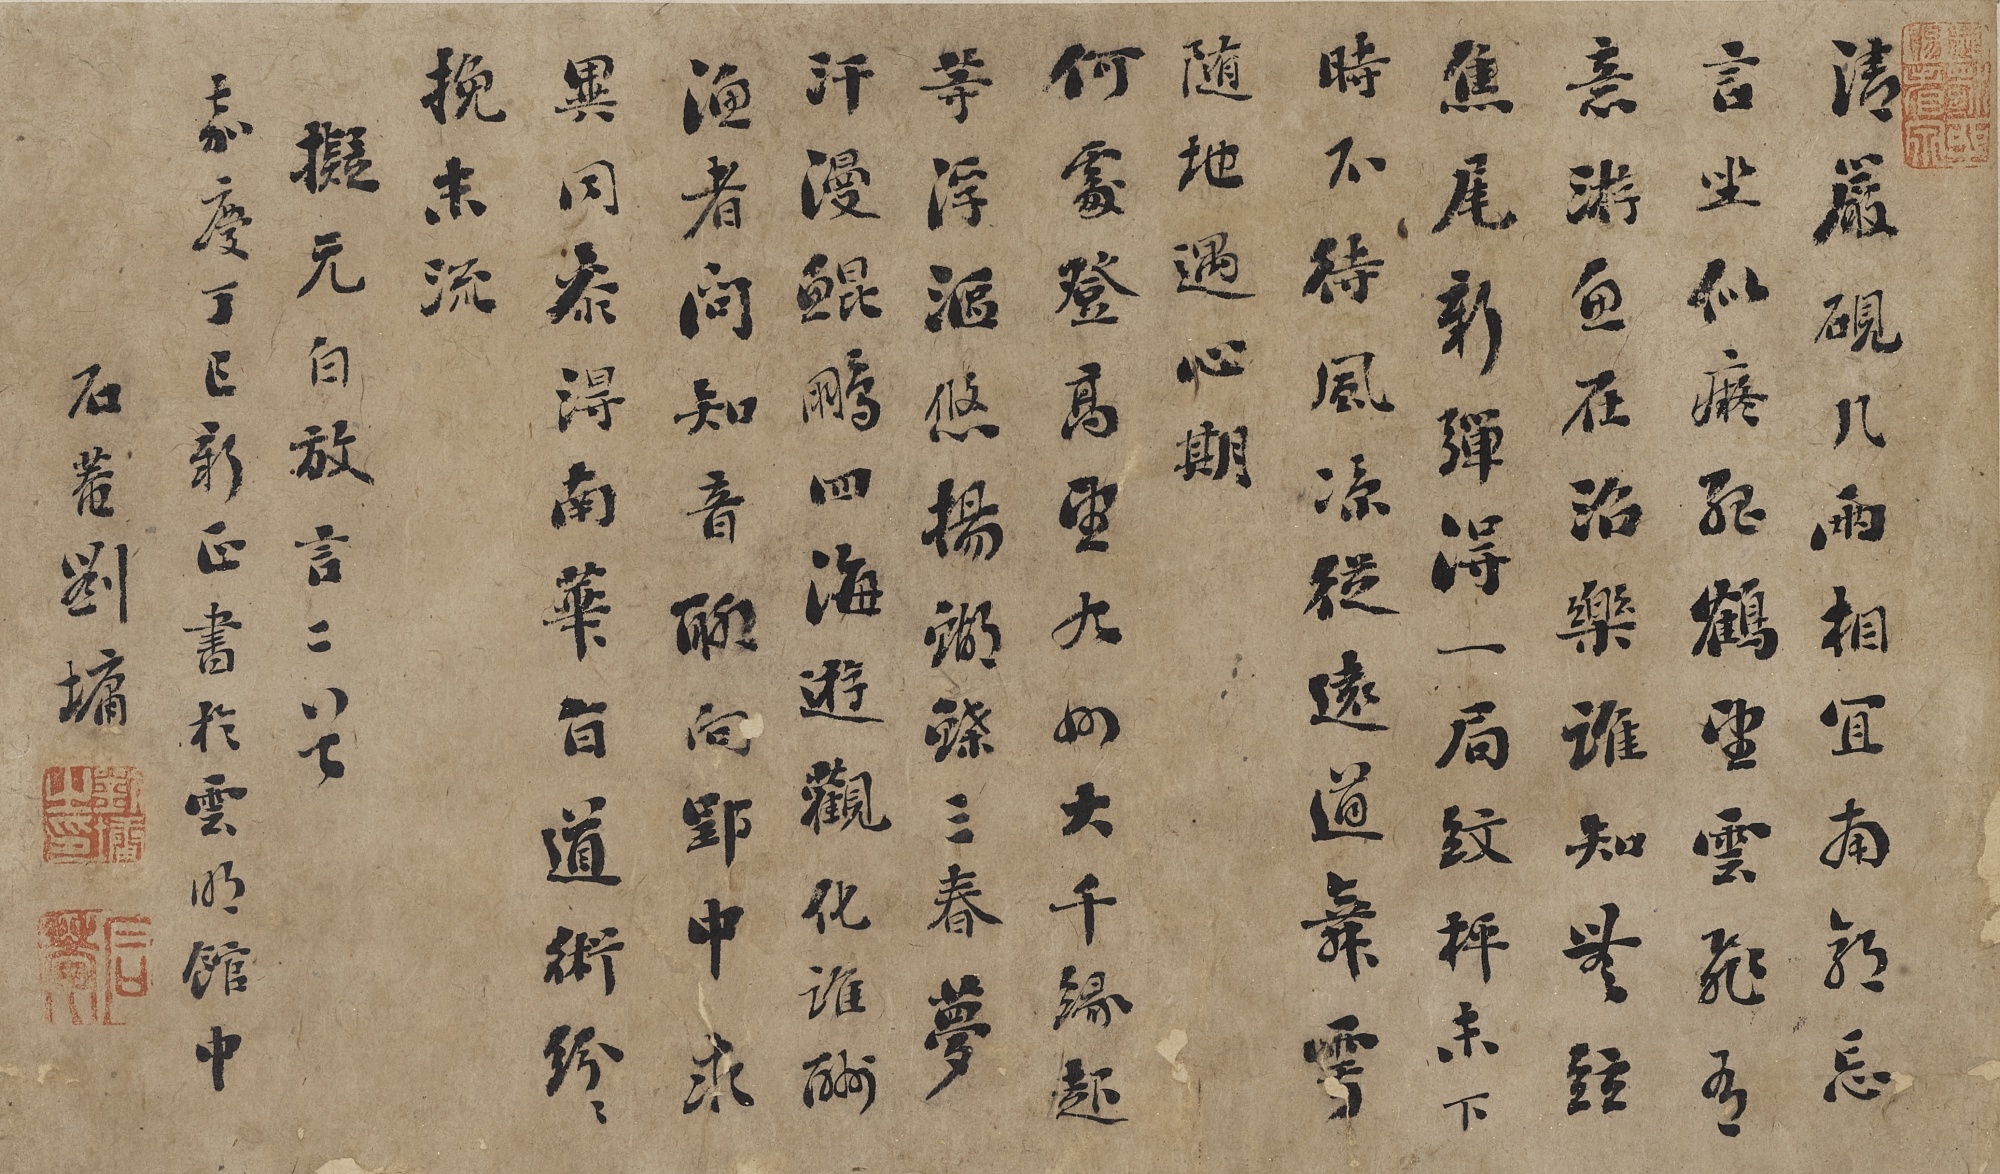 清嚴硯几兩相宜南郭忘
言坐似癡飛鶴望雲飛有
意游魚在沼樂誰知無絃
焦尾新彈得一局紋枰未下
時不待風涼從遠道舞雩
隨地遇心期
何處登高望九州大千緣起
等浮漚悠揚蝴蝶三春夢
汗漫鯤鵬四海遊觀化誰酬
漁者問知音聊向郢中求
異同參得南華旨道術紛〻
挽末流
擬元白放言二首
嘉慶丁巳新正書於雲明館中
石菴劉墉